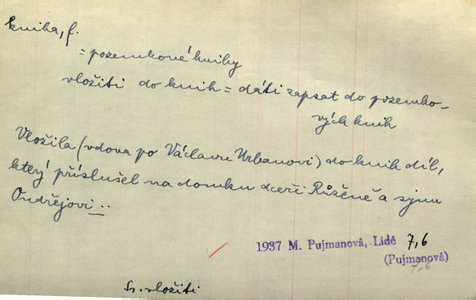 kniha, f.
= pozemkové knihy
vložiti do knih = dáti zapsat do pozemko-
vých knih
Vložila (vdova po Václavu Urbanovi) do knih díl,
který příslušel na domku dceři Růženě a synu
Ondřejovi...
1937 M. Pujmanová, Lidé 7,6
(Pujmanová)
7,6
Sr. vložiti